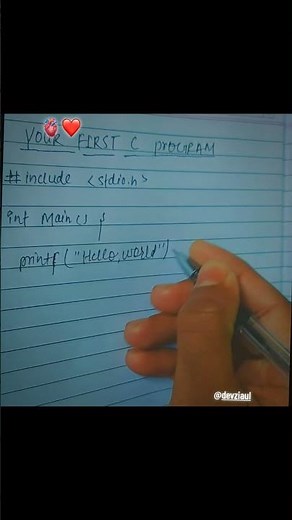 YOUR FIRST C PROGRAM
#include <stdio.h>
int Main() {
printf("Hello, World")
@devziaul